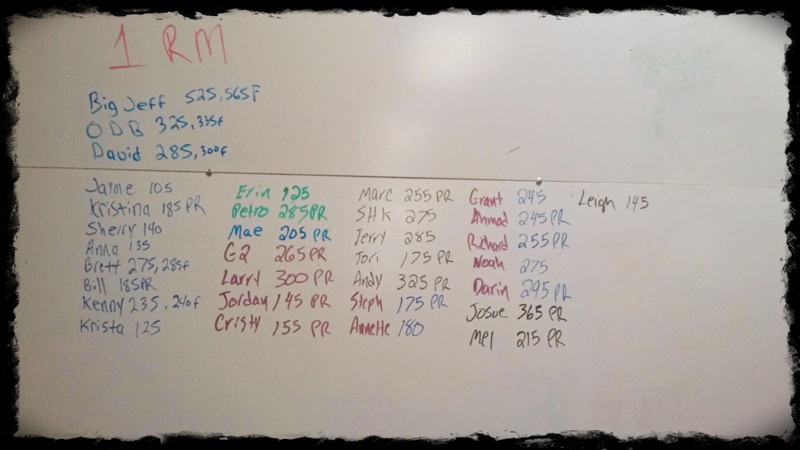 1 RM
Big Jeff 525, 565F
ODB 325, 335f
David 285, 300f
Jayme 105
Kristina 185 PR
Sherry 140
Anna 135
Brett 275, 285f
Bill 185PR
Kenny 235, 240f
Krista 125
Erin 125
Petro 285PR
Mae 205 PR
G2 265 PR
Larry 300 PR
Jordan 145 PR
Cristy 155 PR
Marc 255 PR
SHK 275
Jerry 285
Tori 175 PR
Andy 325 PR
Steph 175 PR
Annette 180
Grant 245
Ahmad 245 PR
Richard 255 PR
Noah 275
Darin 295 PR
Josue 365 PR
Mel 215 PR
Leigh 145